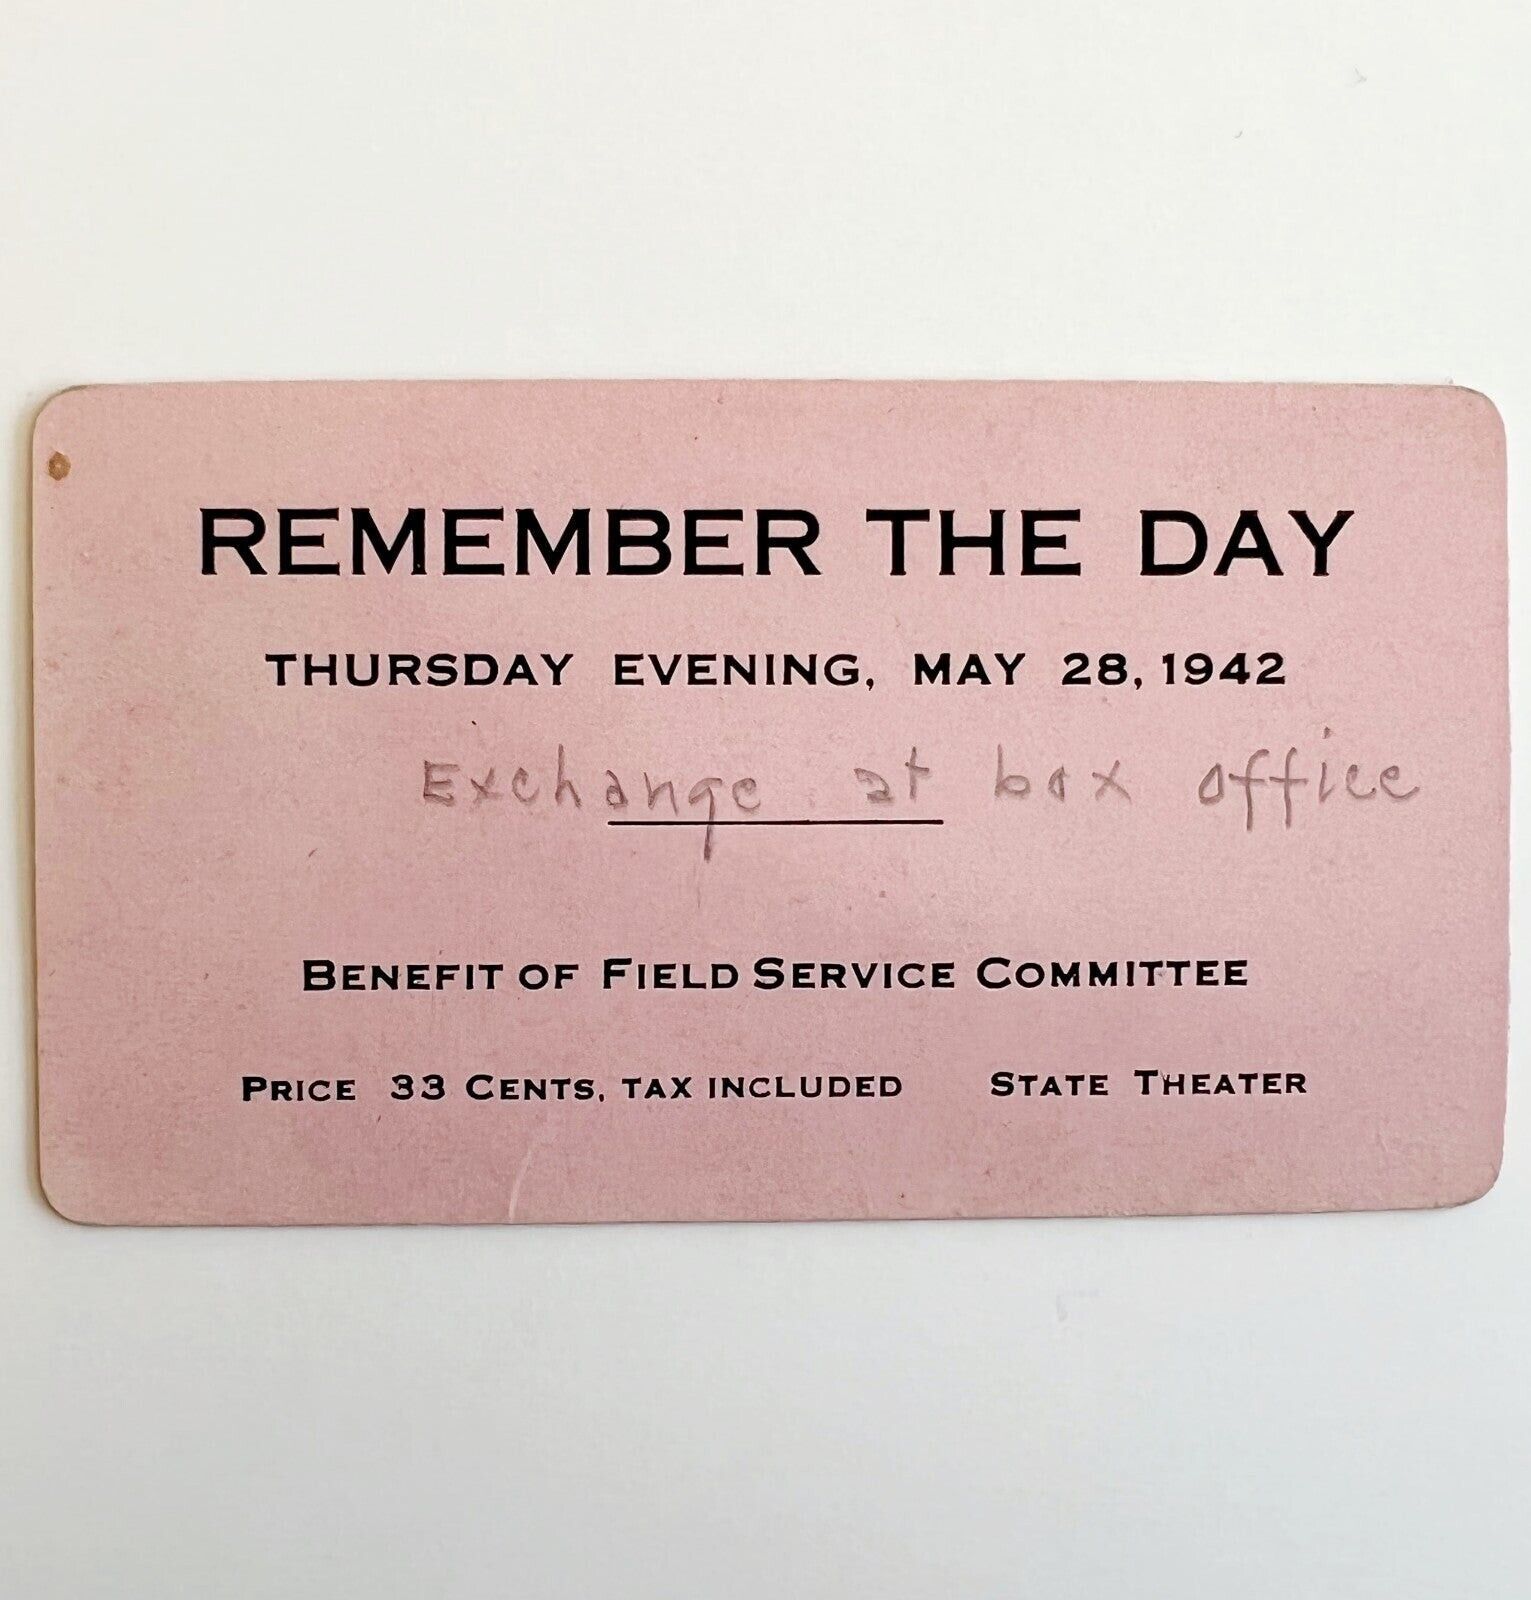 REMEMBER THE DAY
THURSDAY EVENING, MAY 28, 1942
Exchange at box office
BENEFIT OF FIELD SERVICE COMMITTEE
PRICE 33 CENTS, TAX INCLUDED STATE THEATER